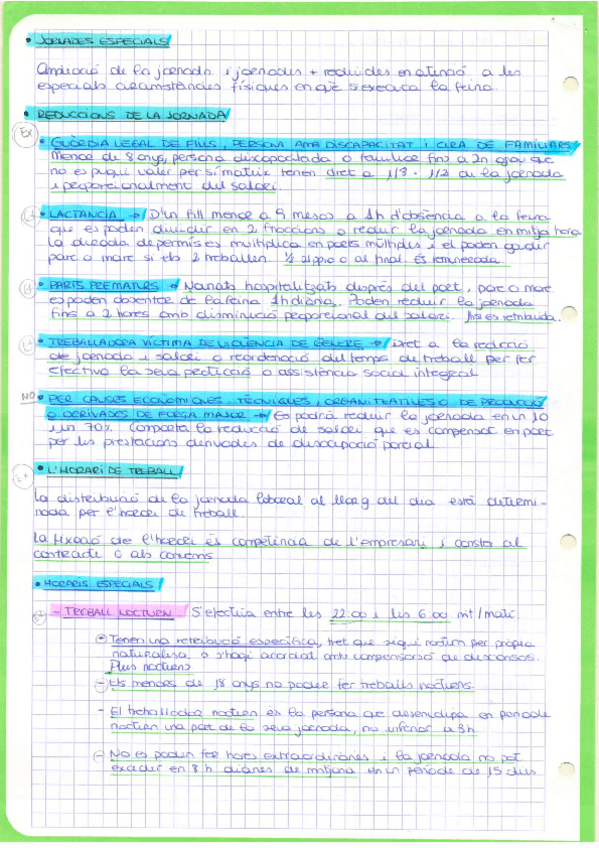 • JORNADES ESPECIALS
Ampliació de la jornada i jornades + reduïdes en atenció a les
especials circumstàncies físiques en què s'executa la feina.
• REDUCCIONS DE LA JORNADA
Ex
• GUÀRDIA LEGAL DE FILLS, PERSONA AMB DISCAPACITAT I CURA DE FAMILIARS
Menor de 8 anys, persona discapacitada o familiar fins a 2n grau que
no es pugui valer per si mateix tenen dret a 1/8 - 1/2 de la jornada
i proporcionalment del salari.
• LACTÀNCIA → D'un fill menor a 9 mesos a 1h d'absència a la feina
que es poden dividir en 2 fraccions o reduir la jornada en mitja hora
la durada de permís es multiplica en parts múltiples i el poden gaudir
pare o mare si els 2 treballen. 1/2 al final. És remunerada.
• PARTS PREMATURS → Nounats hospitalitzats després del part, pare o mare
es poden absentar de la feina 1h diària. Poden reduir la jornada
fins a 2 hores amb disminució proporcional del salari. és retribuïda.
• TREBALLADORA VÍCTIMA DE VIOLÈNCIA DE GÈNERE → Dret a la reducció
de jornada i salari o reordenació del temps de treball per fer
efectiva la seva protecció o assistència social integral
NO
• PER CAUSES ECONÒMIQUES, TÈCNIQUES, ORGANITZATIVES O DE PRODUCCIÓ
O DERIVADES DE FORÇA MAJOR → Es podrà reduir la jornada en un 10
i un 70%. Comporta la reducció de salari que es compensat en part
per les prestacions derivades de desocupació parcial.
• L'HORARI DE TREBALL
la distribució de la jornada laboral al llarg del dia està determi-
nada per l'horari de treball.
la fixació de l'horari és competència de l'empresari i consta al
contracte o als convenis
• HORARIS ESPECIALS
- TREBALL NOCTURN S'efectua entre les 22:00 i les 6:00 mt/matí.
Tenen una retribució específica, tret que sigui nocturn per pròpia
naturalesa o s'hagi acordat amb compensació de descansos.
Plus nocturn
- Els menors de 18 anys no poden fer treballs nocturns.
- El treballador nocturn és la persona que desenvolupa en període
nocturn una part de la seva jornada, no inferior a 3h
- No es poden fer hores extraordinàries i la jornada no pot
excedir en 8h diàries de mitjana en un període de 15 dies